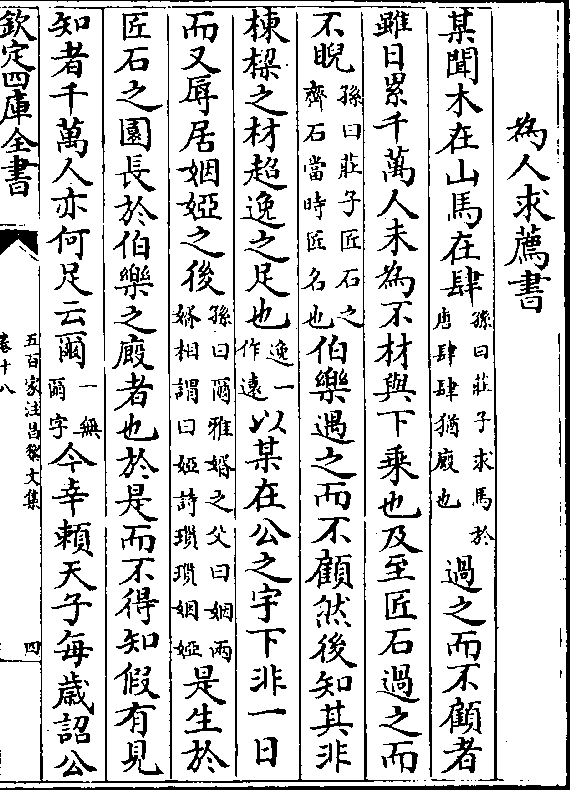 為人求薦書
某聞木在山馬在肆孫曰莊子求馬於唐肆肆猶廄也過之而不顧者
雖日累千萬人未為不材與下乘也及至匠石過之而
不睨孫曰莊子匠石之齊石當時匠名也伯樂遇之而不顧然後知其非
棟樑之材超逸之足也逸一作遠以某在公之宇下非一日
而又辱居姻婭之後孫曰爾雅婿之父曰姻兩婿相謂曰婭詩瑣瑣姻婭是生於
匠石之園長於伯樂之廄者也於是而不得知假有見
知者千萬人亦何足云爾一無爾字今幸賴天子每歲詔公
欽定四庫全書
五百家注昌黎文集
卷十八
四